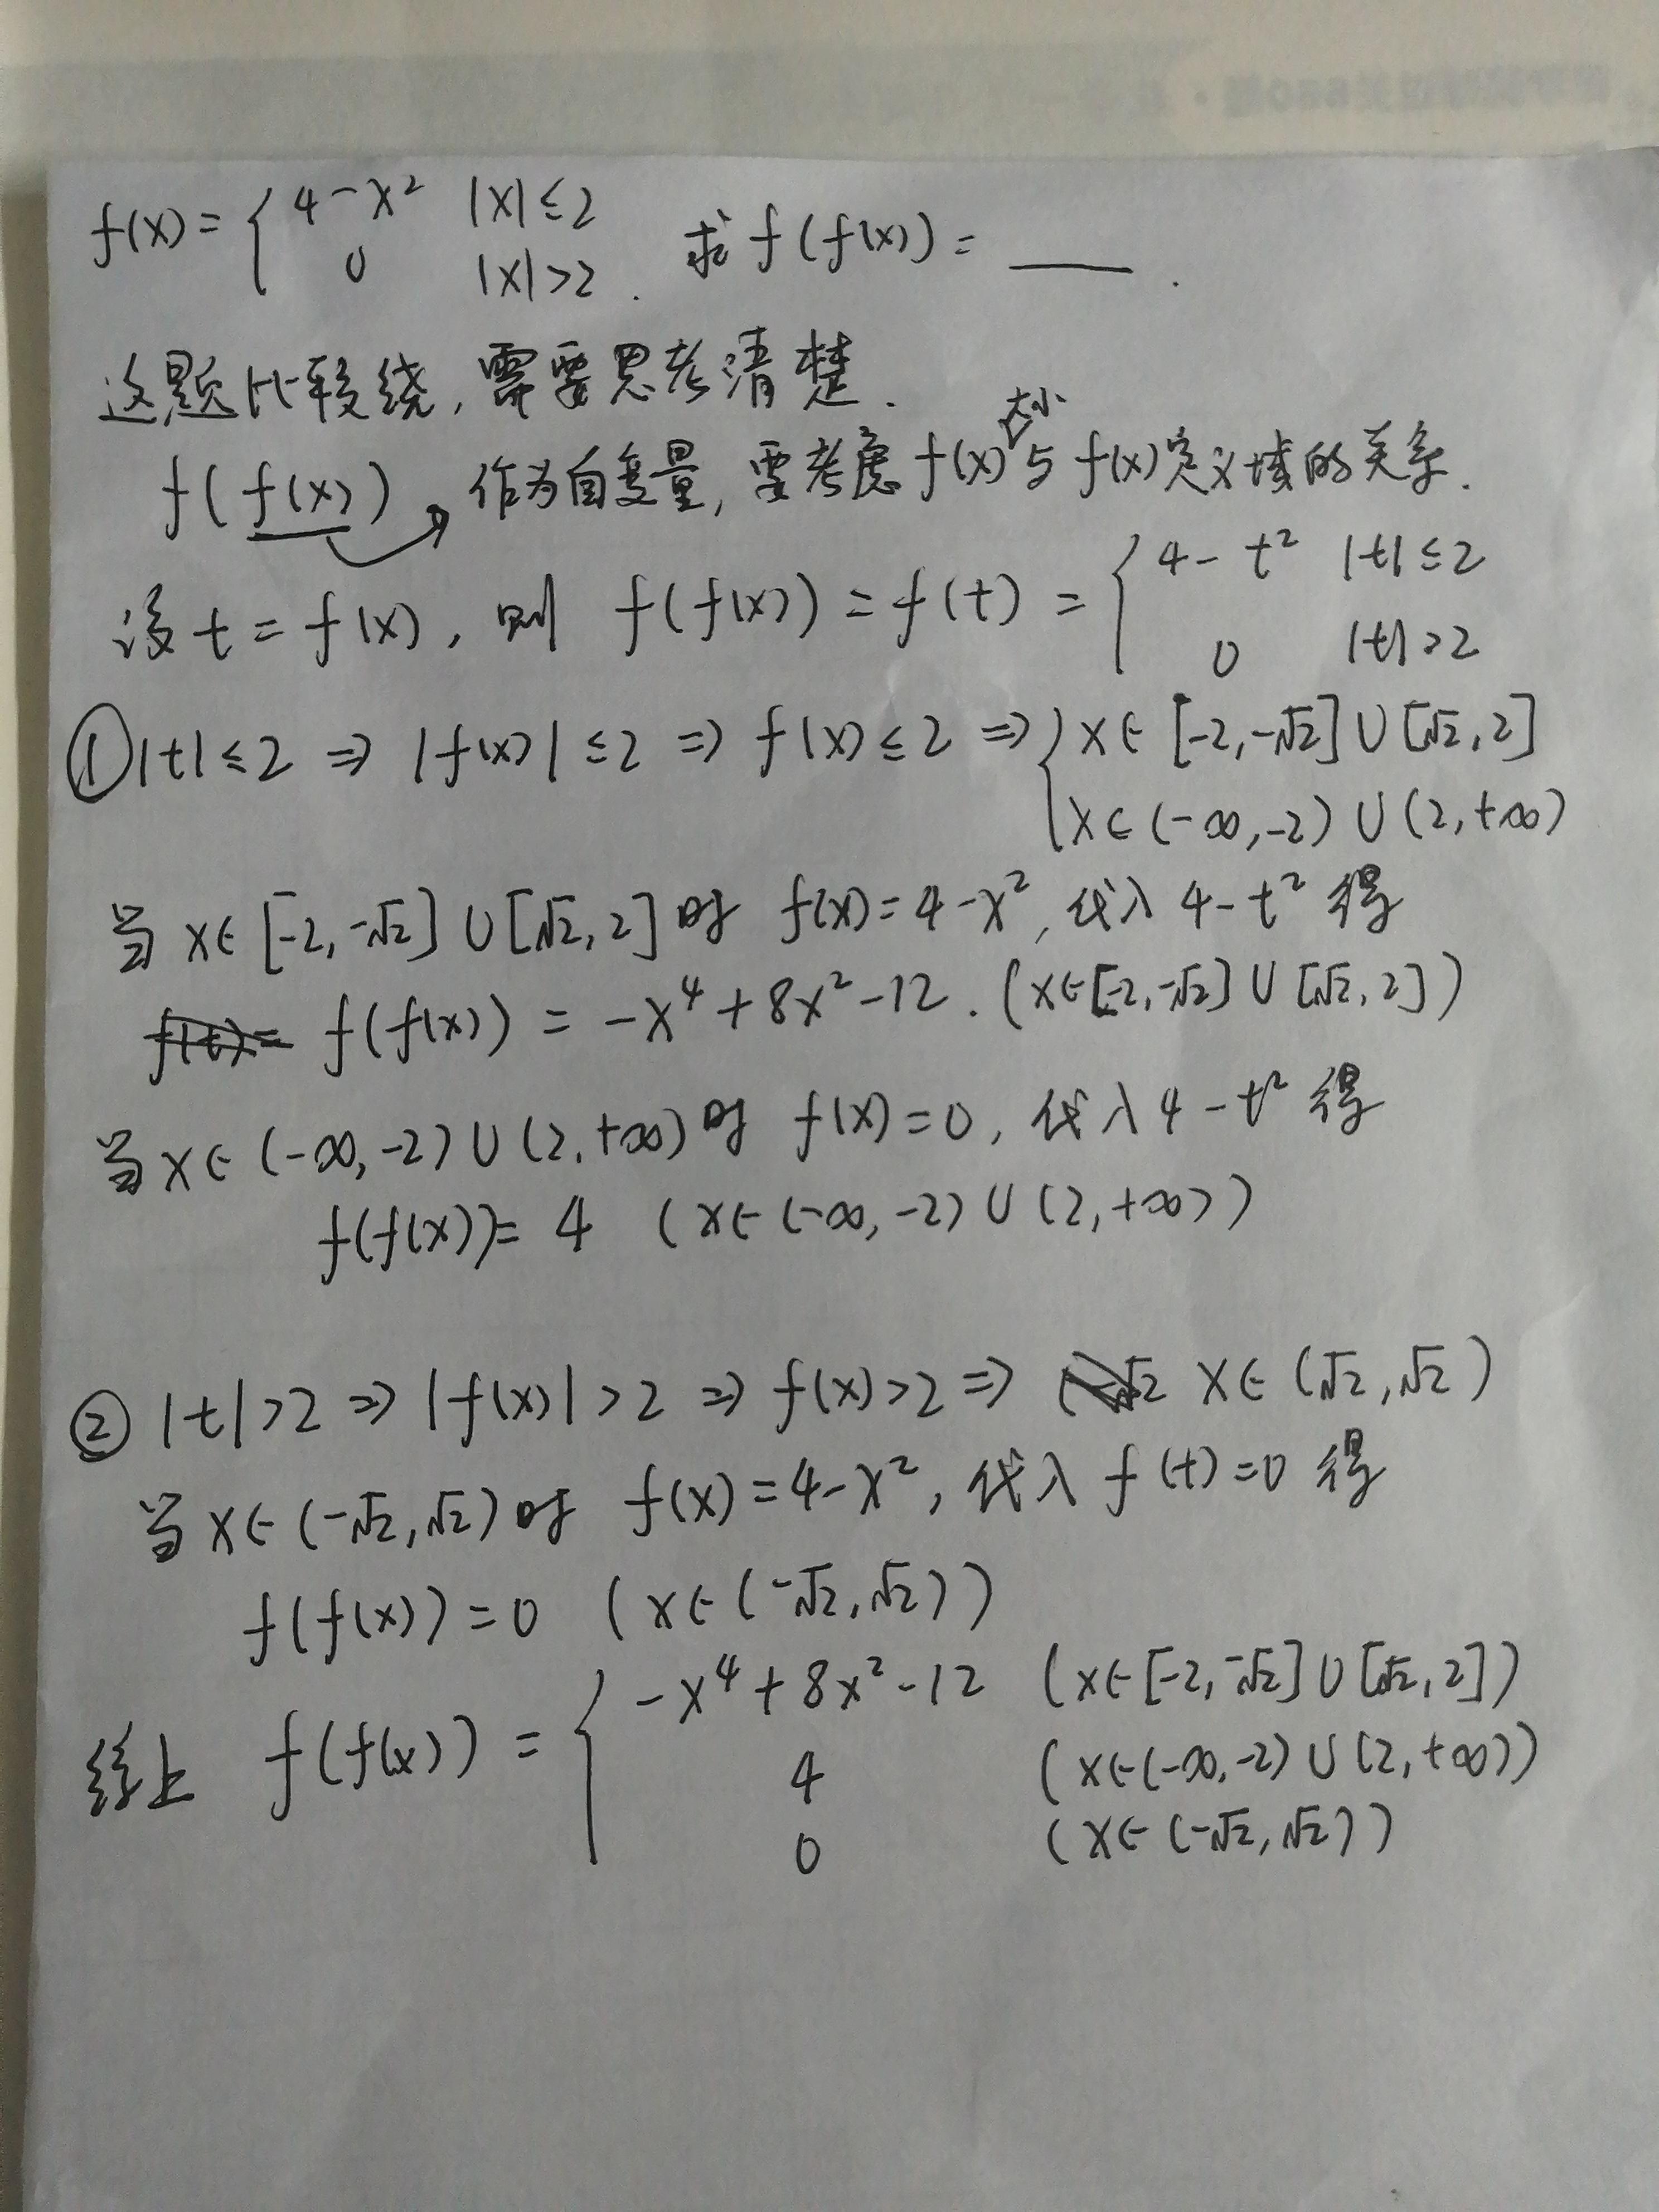 f(x) = { 4-x² |x|≤2
0 |x|>2 . 求 f(f(x)) = ____ .
这题比较绕, 需要思考清楚.
f(f(x)) 作为自变量, 需考虑 f(x) 大小 与 f(x) 定义域的关系.
设 t = f(x), 则 f(f(x)) = f(t) = { 4-t² |t|≤2
0 |t|>2
① |t|≤2 ⇒ |f(x)|≤2 ⇒ f(x)≤2 ⇒ { x∈[-2,-√2]∪[√2,2]
x∈(-∞,-2)∪(2,+∞)
当 x∈[-2,-√2]∪[√2,2] 时 f(x)=4-x², 代入 4-t² 得
f(t)= f(f(x)) = -x⁴+8x²-12. (x∈[-2,-√2]∪[√2,2])
当 x∈(-∞,-2)∪(2,+∞) 时 f(x)=0, 代入 4-t² 得
f(f(x))= 4 (x∈(-∞,-2)∪(2,+∞))
② |t|>2 ⇒ |f(x)|>2 ⇒ f(x)>2 ⇒ x∈(√2,√2)
当 x∈(-√2,√2) 时 f(x)=4-x², 代入 f(t)=0 得
f(f(x))=0 (x∈(-√2,√2))
综上 f(f(x)) = { -x⁴+8x²-12 (x∈[-2,-√2]∪[√2,2])
4 (x∈(-∞,-2)∪(2,+∞))
0 (x∈(-√2,√2))